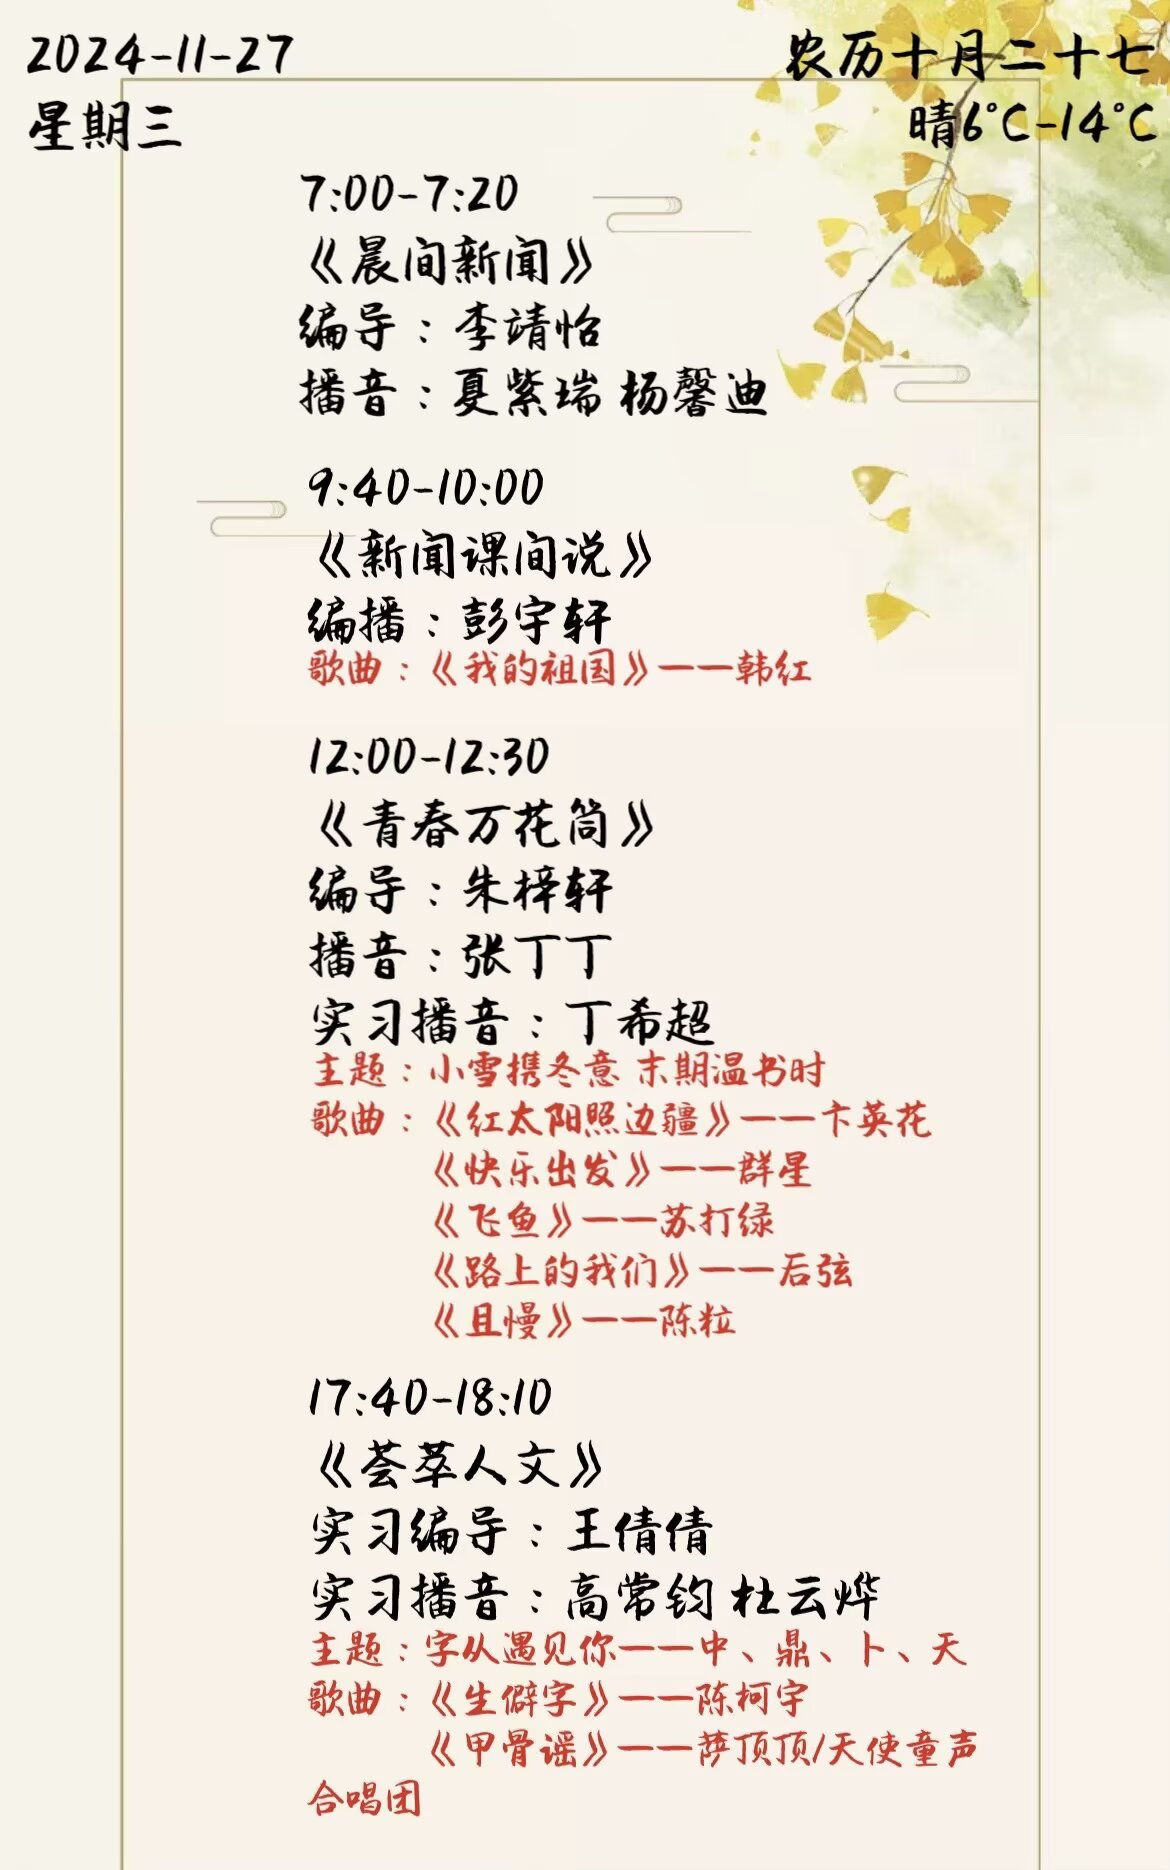 2024-11-27
农历十月二十七
星期三
晴6°C-14°C
7:00-7:20
《晨间新闻》
编导：李靖怡
播音：夏紫瑞 杨馨迪
9:40-10:00
《新闻课间说》
编播：彭宇轩
歌曲：《我的祖国》——韩红
12:00-12:30
《青春万花筒》
编导：朱梓轩
播音：张丁丁
实习播音：丁希超
主题：小雪携冬意 末期温书时
歌曲：《红太阳照边疆》——卞英花
《快乐出发》——群星
《飞鱼》——苏打绿
《路上的我们》——后弦
《且慢》——陈粒
17:40-18:10
《荟萃人文》
实习编导：王倩倩
实习播音：高常钧 杜云烨
主题：字从遇见你——中、鼎、卜、天
歌曲：《生僻字》——陈柯宇
《甲骨谣》——萨顶顶/天使童声
合唱团